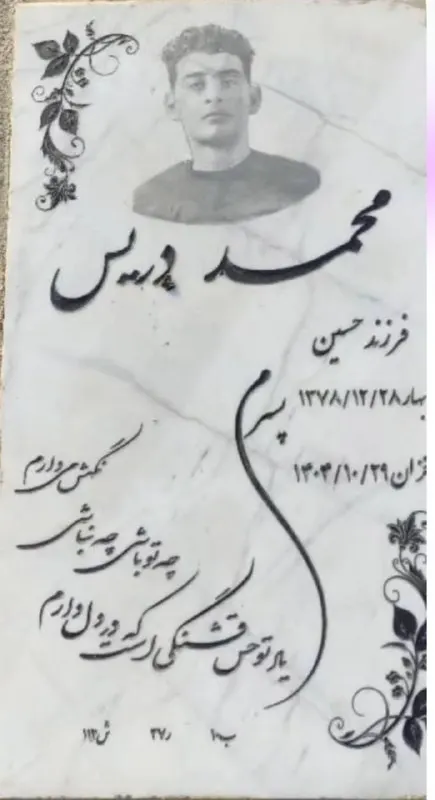 محمد پریس
فرزند حسین
بهار ۱۳۷۸/۱۲/۲۸
خزان ۱۴۰۴/۱۰/۲۹
پسرم
نگهش می دارم
چه تو باشی چه نباشی
یاد تو حس قشنگی است که در دل دارم
ب۱۰ ر۲۷ ش۱۱۲